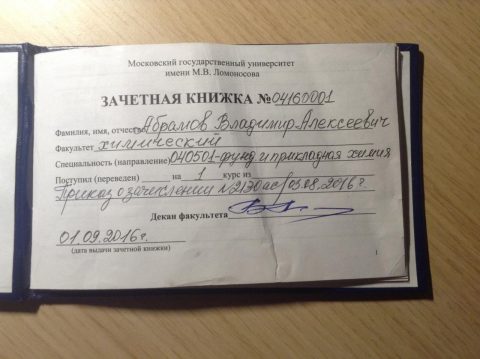 Московский государственный университет
имени М.В. Ломоносова
ЗАЧЕТНАЯ КНИЖКА №04160001
Фамилия, имя, отчество Абрамов Владимир Алексеевич
Факультет химический
Специальность (направление) 040501-фунд и прикладная химия
Поступил (переведен) на 1 курс из
Приказ о зачислении №2130ас/03.08.2016г.
Декан факультета
01.09.2016г.
(дата выдачи зачетной книжки)
1